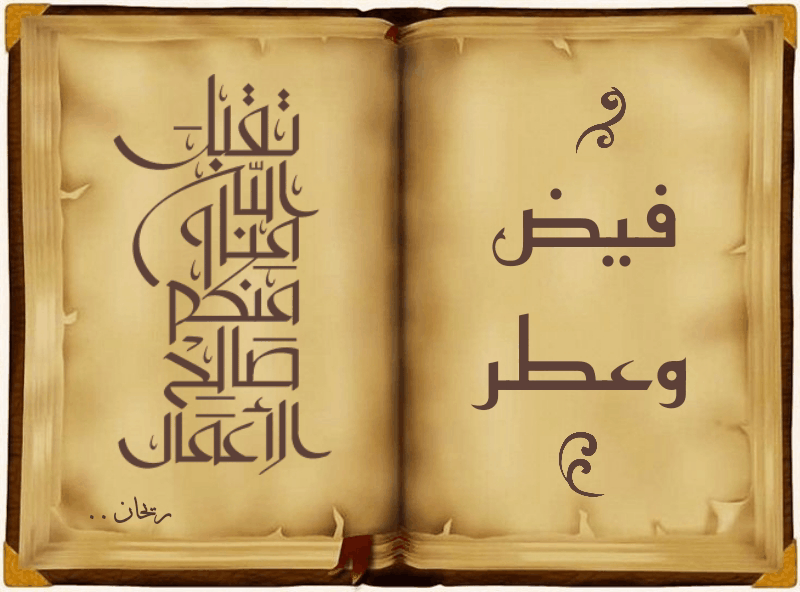 فيض
وعطر
تقبل
الله
منا و
منكم
صَالِح
الأعمال
ريحان ..